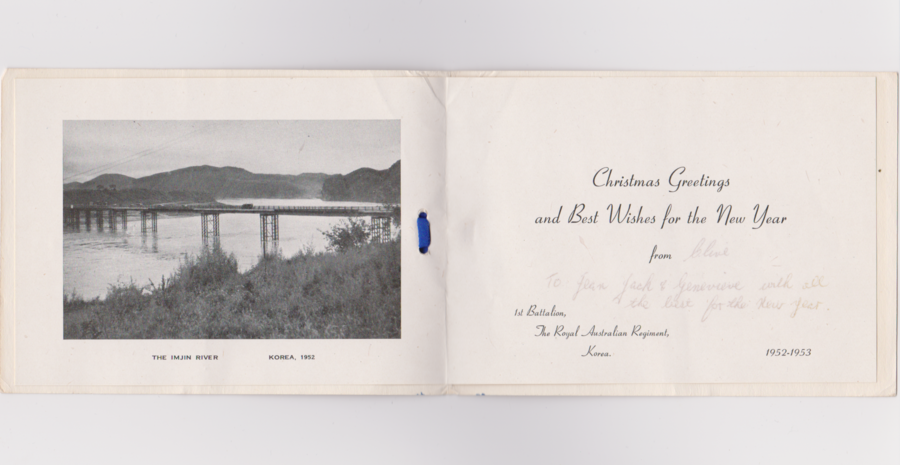 THE IMJIN RIVER KOREA, 1952
Christmas Greetings
and Best Wishes for the New Year
from Clive
To Jean Jack & Genevieve with all
the best for the New Year.
1st Battalion,
The Royal Australian Regiment,
Korea.
1952-1953